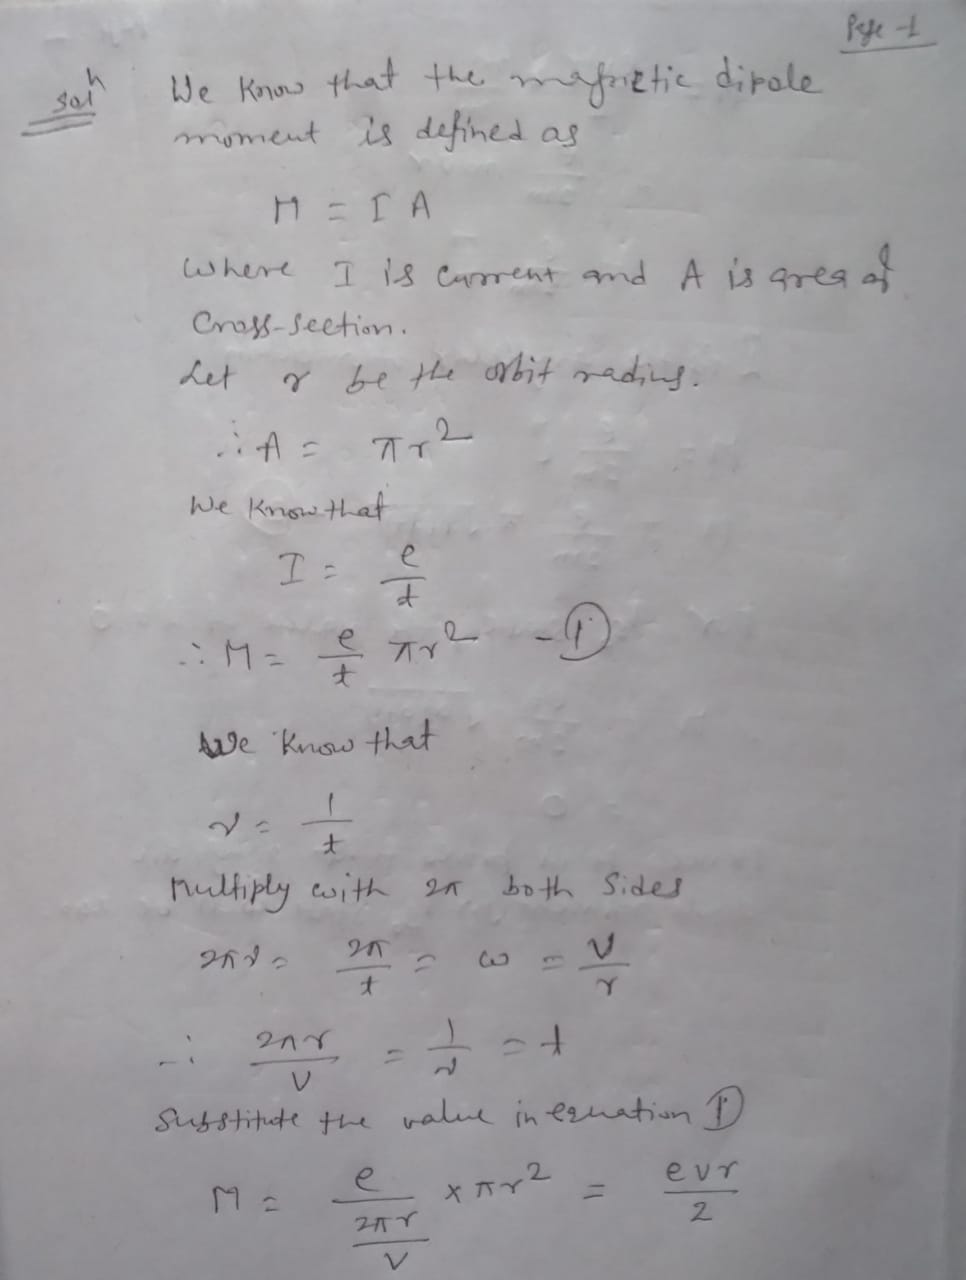 Page-1
Solⁿ We know that the magnetic dipole
moment is defined as
M = I A
Where I is current and A is area of
Cross-section.
Let r be the orbit radius.
∴ A = πr²
We know that
I = e/t
∴ M = e/t πr² - ①
We know that
ν = 1/t
Multiply with 2π both Sides
2πν = 2π/t = ω = V/r
∴ 2πr/V = 1/ν = t
Substitute the value in equation ①
M = e/(2πr/V) × πr² = evr/2